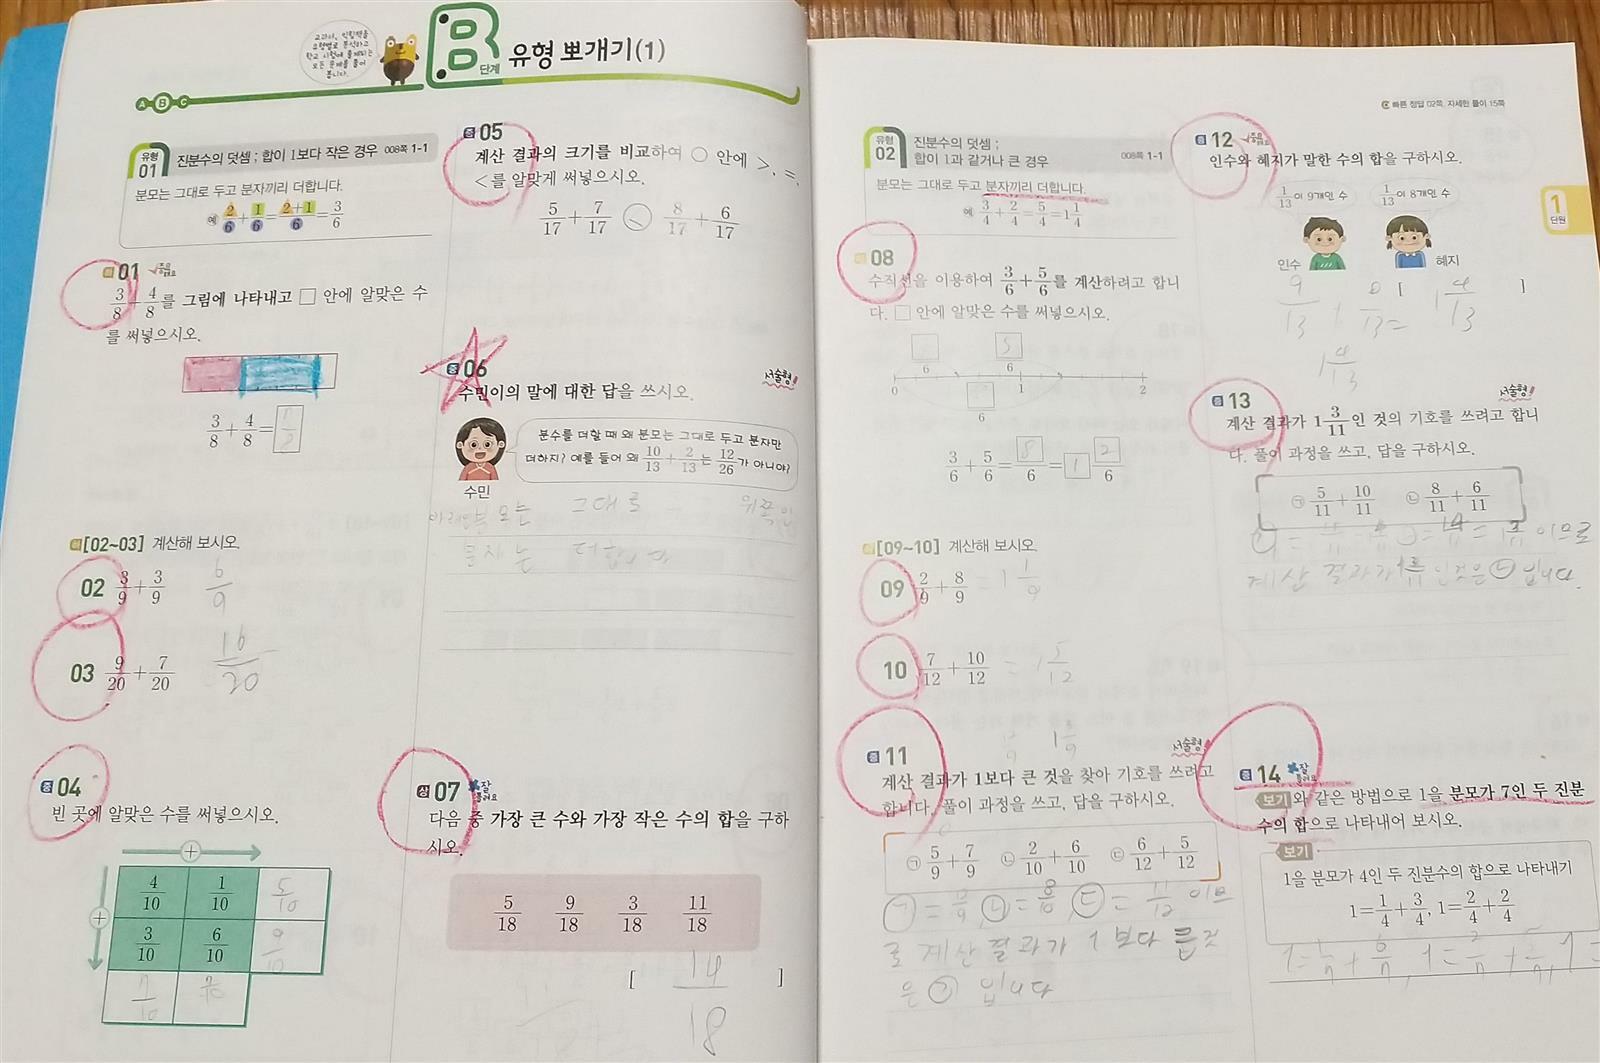 교과서, 익힘책을
유형별로 분석하고
학교 시험에 출제되는
모든 문제를 풀어
봅니다.
A B C
B 단계 유형 뽀개기(1)
유형 01 진분수의 덧셈 ; 합이 1보다 작은 경우 008쪽 1-1
분모는 그대로 두고 분자끼리 더합니다.
예 2/6 + 1/6 = 2+1/6 = 3/6
01 중요해요
3/8 + 4/8를 그림에 나타내고 □ 안에 알맞은 수
를 써넣으시오.
3/8 + 4/8 =
[02~03] 계산해 보시오.
02 3/9 + 3/9 6/9
03 9/20 + 7/20 16/20
중 04
빈 곳에 알맞은 수를 써넣으시오.
+
+ 4/10 1/10 5/10
3/10 6/10 9/10
7/10 7/10
중 05
계산 결과의 크기를 비교하여 ○ 안에 >, =,
<를 알맞게 써넣으시오.
5/17 + 7/17 8/17 + 6/17
중 06 서술형!
수민이의 말에 대한 답을 쓰시오.
분수를 더할 때 왜 분모는 그대로 두고 분자만
더하지? 예를 들어 왜 10/13 + 2/13는 12/26가 아니야?
수민
그대로 위쪽인
분자는 더합니다
상 07 잘 틀려요
다음 중 가장 큰 수와 가장 작은 수의 합을 구하
시오.
5/18 9/18 3/18 11/18
[ 14/18 ]
빠른 정답 02쪽, 자세한 풀이 15쪽
유형 02 진분수의 덧셈 ;
합이 1과 같거나 큰 경우 008쪽 1-1
분모는 그대로 두고 분자끼리 더합니다.
예 3/4 + 2/4 = 5/4 = 1 1/4
08
수직선을 이용하여 3/6 + 5/6를 계산하려고 합니
다. □ 안에 알맞은 수를 써넣으시오.
6 5/6
0 1 2
6
3/6 + 5/6 = 8/6 = 1 2/6
[09~10] 계산해 보시오.
09 2/9 + 8/9 = 1 1/9
10 7/12 + 10/12 = 1 5/12
12/9 1 3/9
중 11 서술형!
계산 결과가 1보다 큰 것을 찾아 기호를 쓰려고
합니다. 풀이 과정을 쓰고, 답을 구하시오.
㉠ 5/9 + 7/9 ㉡ 2/10 + 6/10 ㉢ 6/12 + 5/12
㉠ = 12/9, ㉡ = 8/10, ㉢ = 11/12 이므
로 계산 결과가 1보다 큰 것
은 ㉠ 입니다
중 12 중요해요
인수와 혜지가 말한 수의 합을 구하시오.
1/13이 9개인 수 1/13이 8개인 수
인수 혜지
9/13 + 8/13 = [ 1 4/13 ]
1 4/13
중 13 서술형!
계산 결과가 1 3/11인 것의 기호를 쓰려고 합니
다. 풀이 과정을 쓰고, 답을 구하시오.
㉠ 5/11 + 10/11 ㉡ 8/11 + 6/11
이므로
계산 결과가 1 3/11 인 것은 ㉡ 입니다.
중 14 잘 틀려요
보기와 같은 방법으로 1을 분모가 7인 두 진분
수의 합으로 나타내어 보시오.
보기
1을 분모가 4인 두 진분수의 합으로 나타내기
1 = 1/4 + 3/4, 1 = 2/4 + 2/4
1 = 1/7 + 6/7, 1 = 2/7 + 5/7, 1 =
1 단원